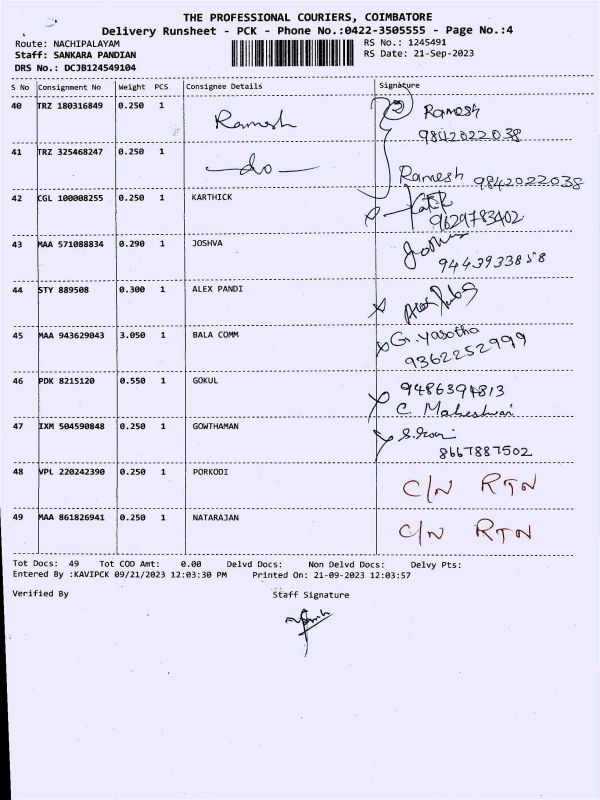 THE PROFESSIONAL COURIERS, COIMBATORE
Delivery Runsheet - PCK - Phone No.:0422-3505555 - Page No.:4
Route: NACHIPALAYAM RS No.: 1245491
Staff: SANKARA PANDIAN RS Date: 21-Sep-2023
DRS No.: DCJB124549104
S No Consignment No Weight PCS Consignee Details Signature
40 TRZ 180316849 0.250 1 Ramesh Ramesh
9842022038
41 TRZ 325468247 0.250 1 -do- Ramesh 9842022038
42 CGL 100008255 0.250 1 KARTHICK
9629783402
43 MAA 571088834 0.290 1 JOSHVA
9443933858
44 STY 889508 0.300 1 ALEX PANDI
45 MAA 943629043 3.050 1 BALA COMM G. Yasotha
9362252999
46 PDK 8215120 0.550 1 GOKUL 9486394813
C. Maheshwari
47 IXM 504590848 0.250 1 GOWTHAMAN
8667887502
48 VPL 220242390 0.250 1 PORKODI C/N RTN
49 MAA 861826941 0.250 1 NATARAJAN C/N RTN
Tot Docs: 49 Tot COD Amt: 0.00 Delvd Docs: Non Delvd Docs: Delvy Pts:
Entered By :KAVIPCK 09/21/2023 12:03:30 PM Printed On: 21-09-2023 12:03:57
Verified By Staff Signature